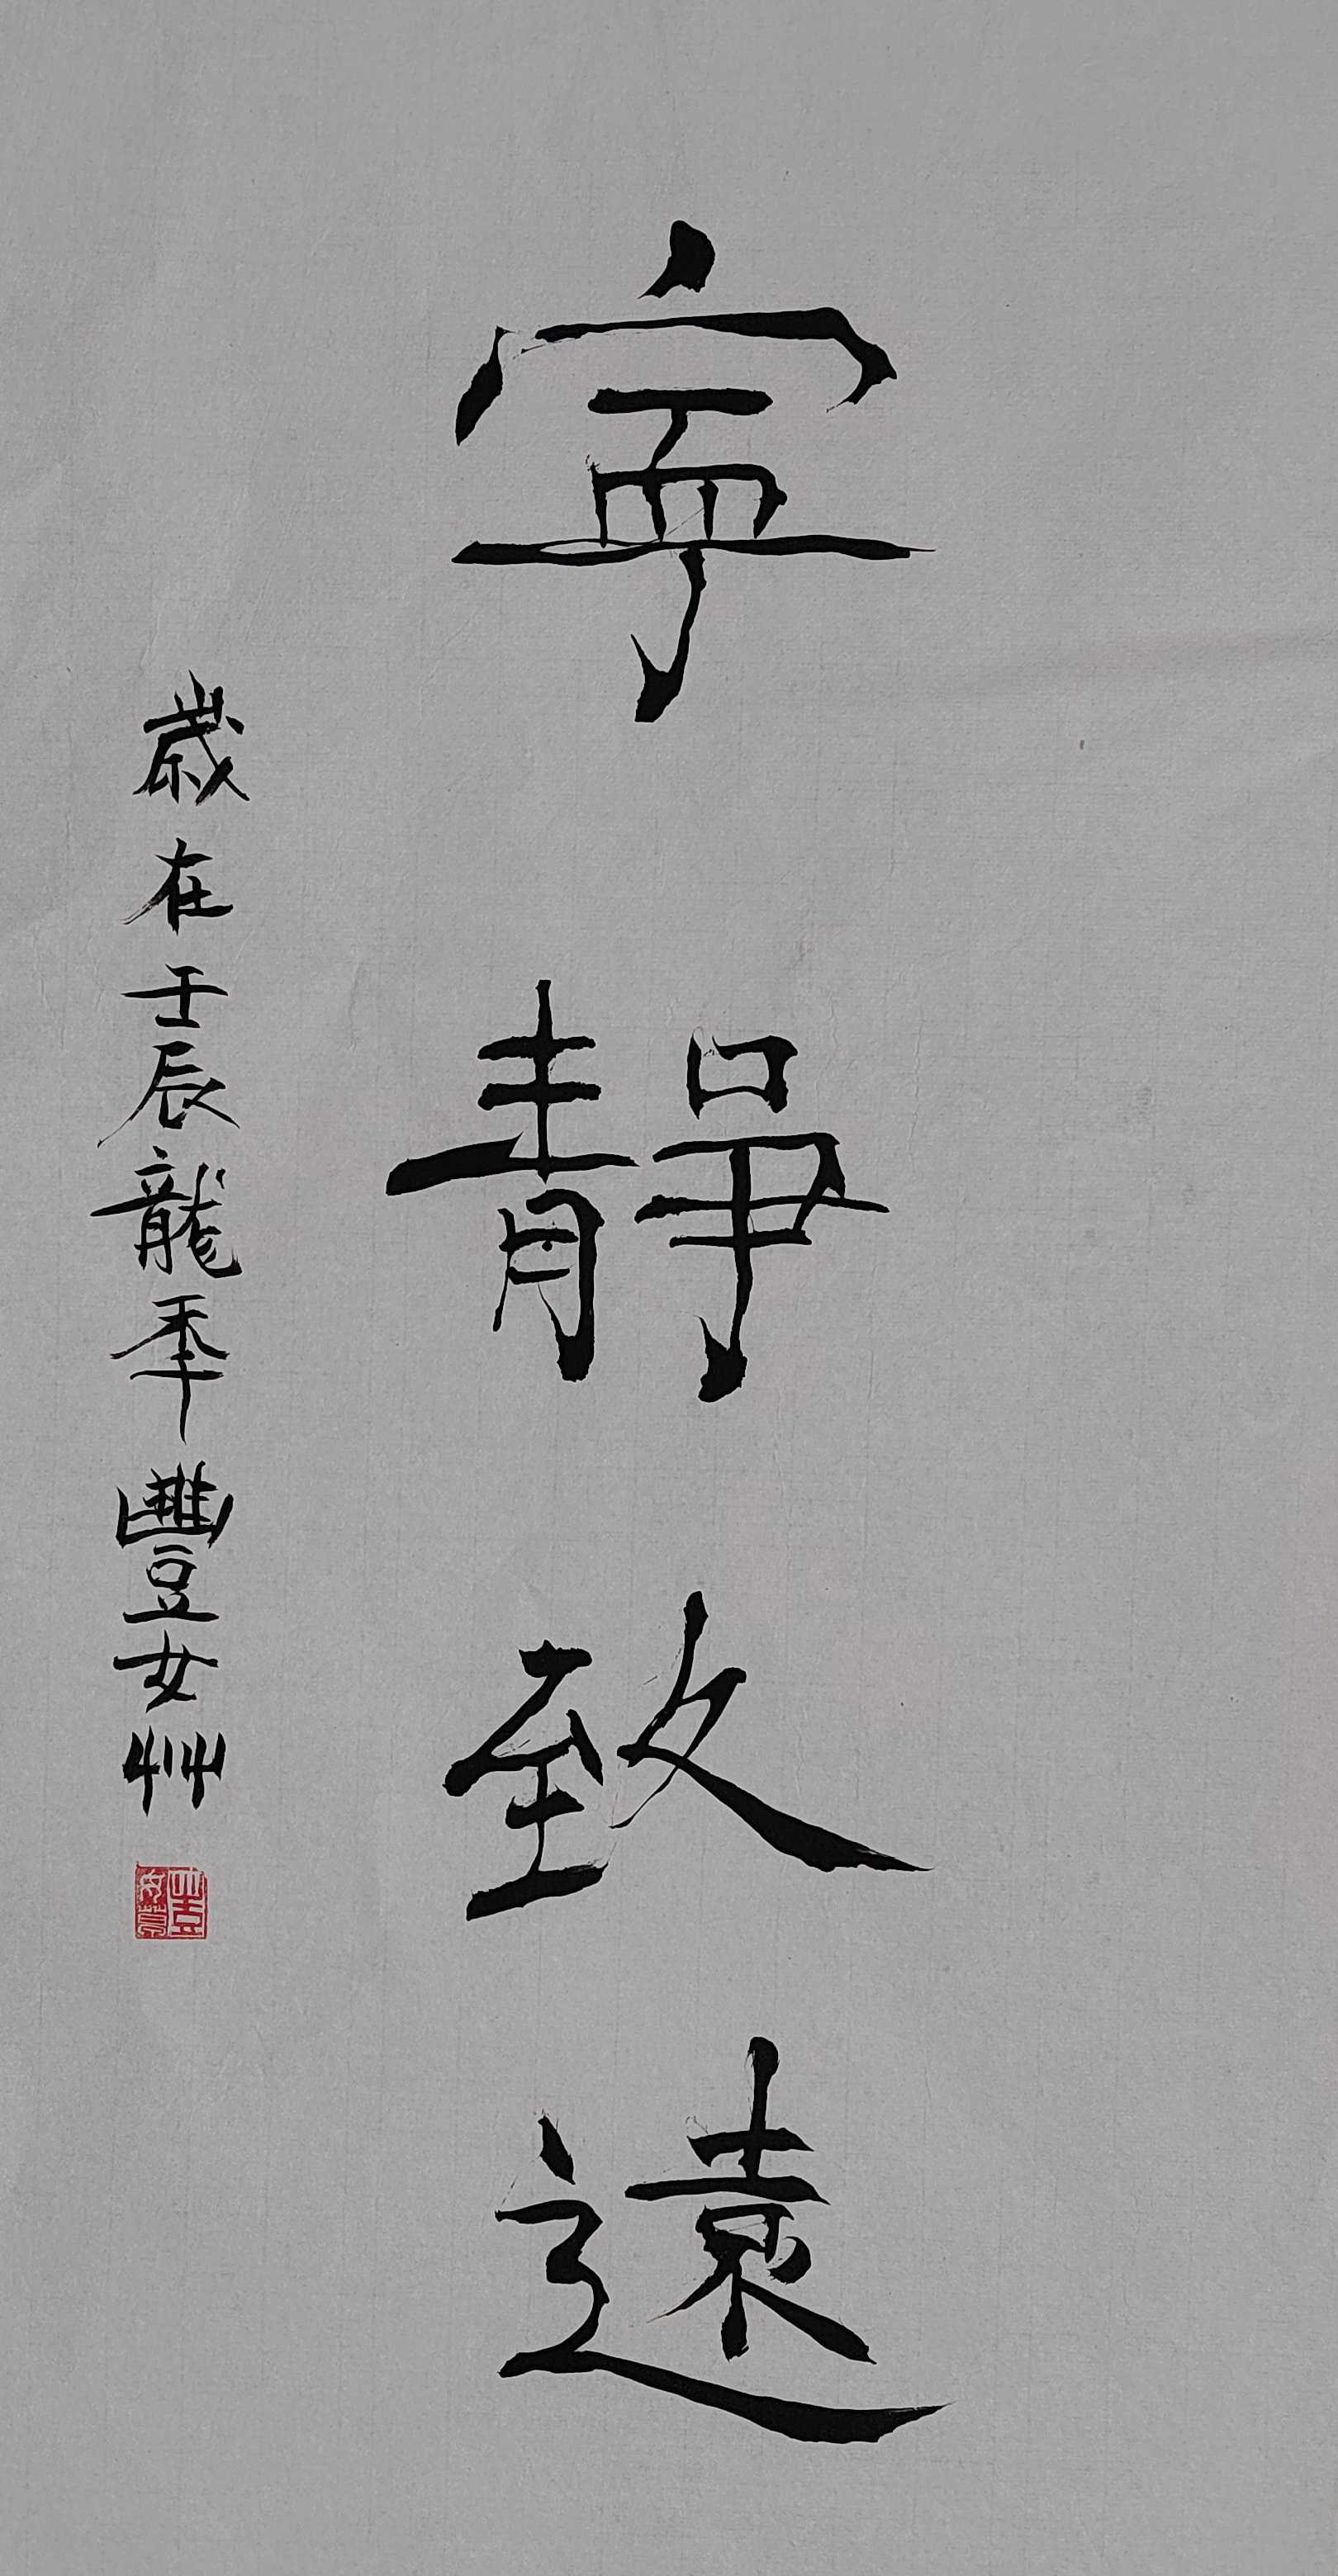 寧靜致遠
歲在壬辰龍年豐女艸